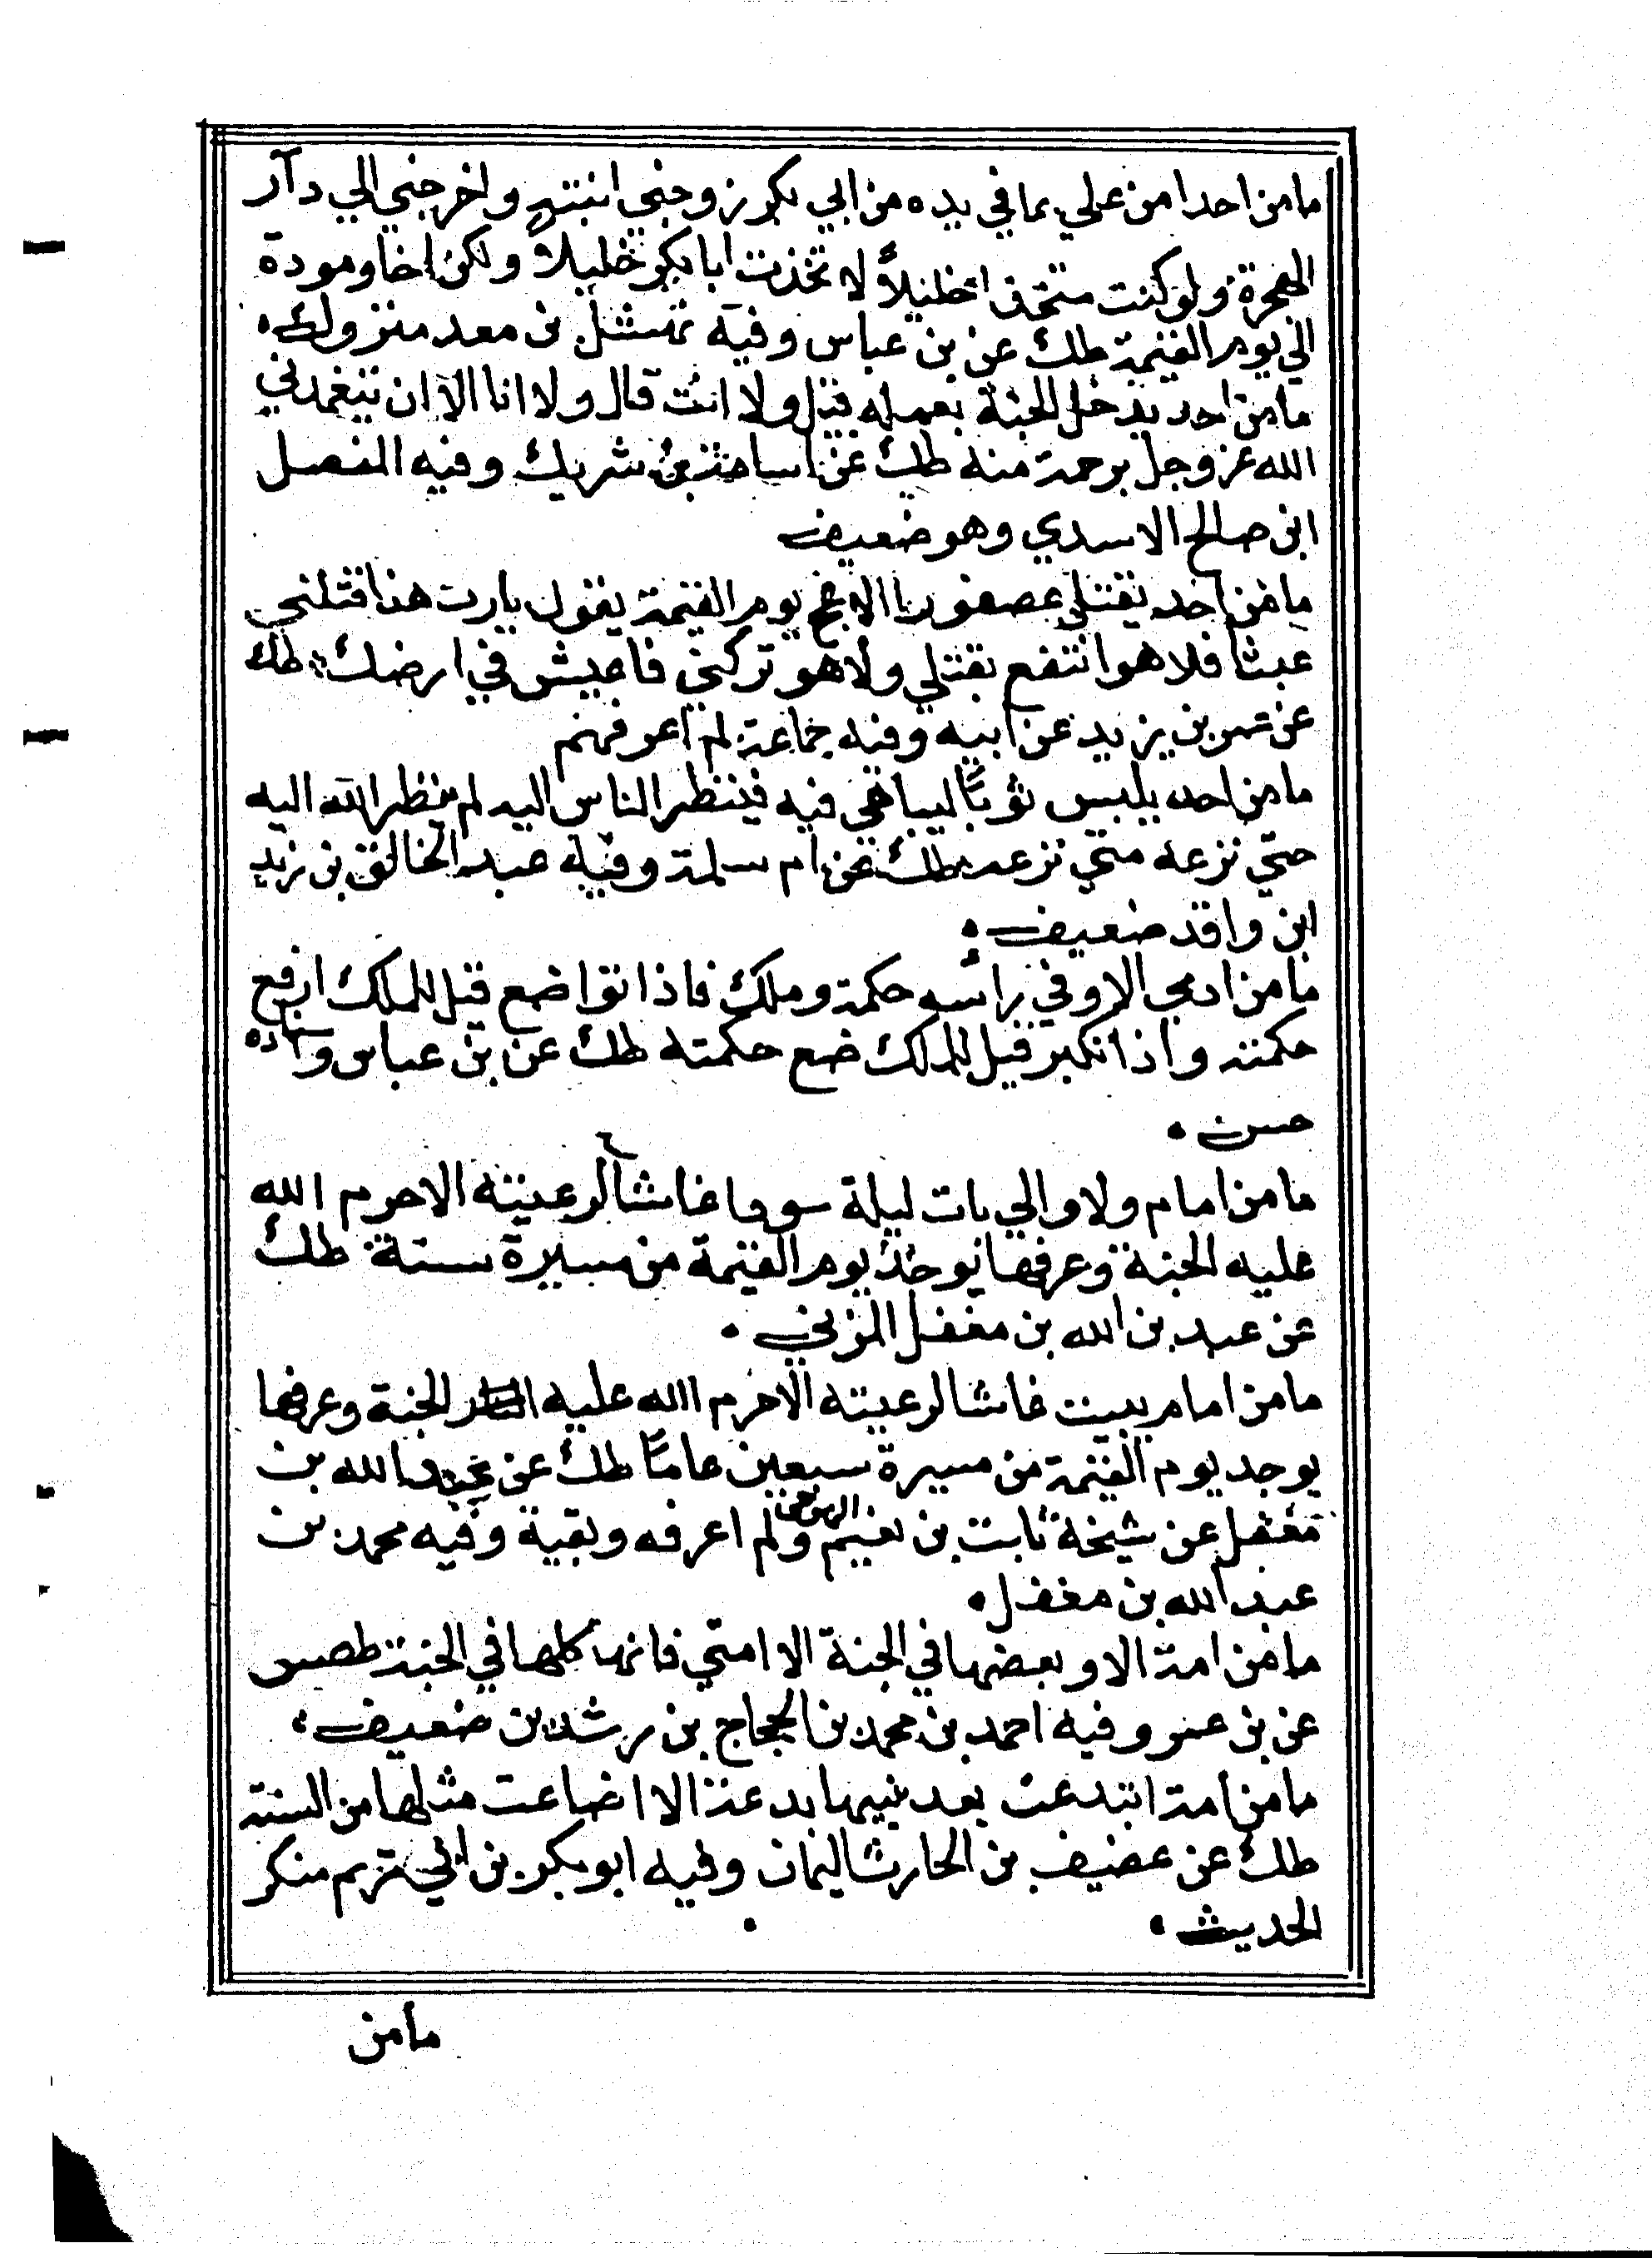 ما من احد امن علي بما في يده من ابي بكر زوجني ابنته واخرجني الي دار
الهجرة ولو كنت متخذا خليلاً لاتخذت ابا بكر خليلاً ولكن اخا ومودة
الي يوم القيمة طك عن بن عباس وفيه نهشل بن معد متروك
ما من احد يدخل الجنة بعمله قيل ولا انت قال ولا انا الا ان يتغمدني
الله عز وجل برحمة منه طك عن اسامة بن شريك وفيه المفصل
ابن صالح الاسدي وهو ضعيف
ما من احد يقتل عصفورا الا عج يوم القيمة يقول يا رب هذا قتلني
عبثا فلا هو انتفع بقتلي ولا هو تركني فاعيش في ارضك طك
عن عمر بن يزيد عن ابيه وفيه جماعة لم اعرفهم
ما من احد يلبس ثوبًا ليباهي فيه فينظر الناس اليه لم ينظر الله اليه
حتي نزعه متي نزعه طك عن ام سلمة وفيه عبد الخالق بن زيد
ابن واقد ضعيف
ما من ادمي الا وفي راسه حكمة وملك فاذا تواضع قيل للملك ارفع
حكمته واذا تكبر قيل للملك ضع حكمته طك عن بن عباس واسناده
حسن
ما من امام ولا والي بات ليلة سوداغاشا لرعيته الا حرم الله
عليه الجنة وعرفها يوجد يوم القيمة من مسيرة ستة طك
عن عبد بن الله بن مغفل المزني
ما من امام يبيت غاشا لرعيته الا حرم االله عليه الجنة وعرفها
يوجد يوم القيمة من مسيرة سبعين عامًا طك عن عبد الله بن
مغفل عن شيخة ثابت بن نعيم ولم اعرفه وبقية وفيه محمد بن
عبد الله بن مغفل
ما من امة الا وبعضها في الجنة الا امتي فانها كلها في الجنة طصس
عن بن عمر وفيه احمد بن محمد بن الحجاج بن رشدين ضعيف
ما من امة ابتدعت بعد نبيها بدعة الا اضاعت مثلها من السنة
طك عن عضيف بن الحارث اليمان وفيه ابو بكر بن ابي مريم منكر
الحديث
ما من